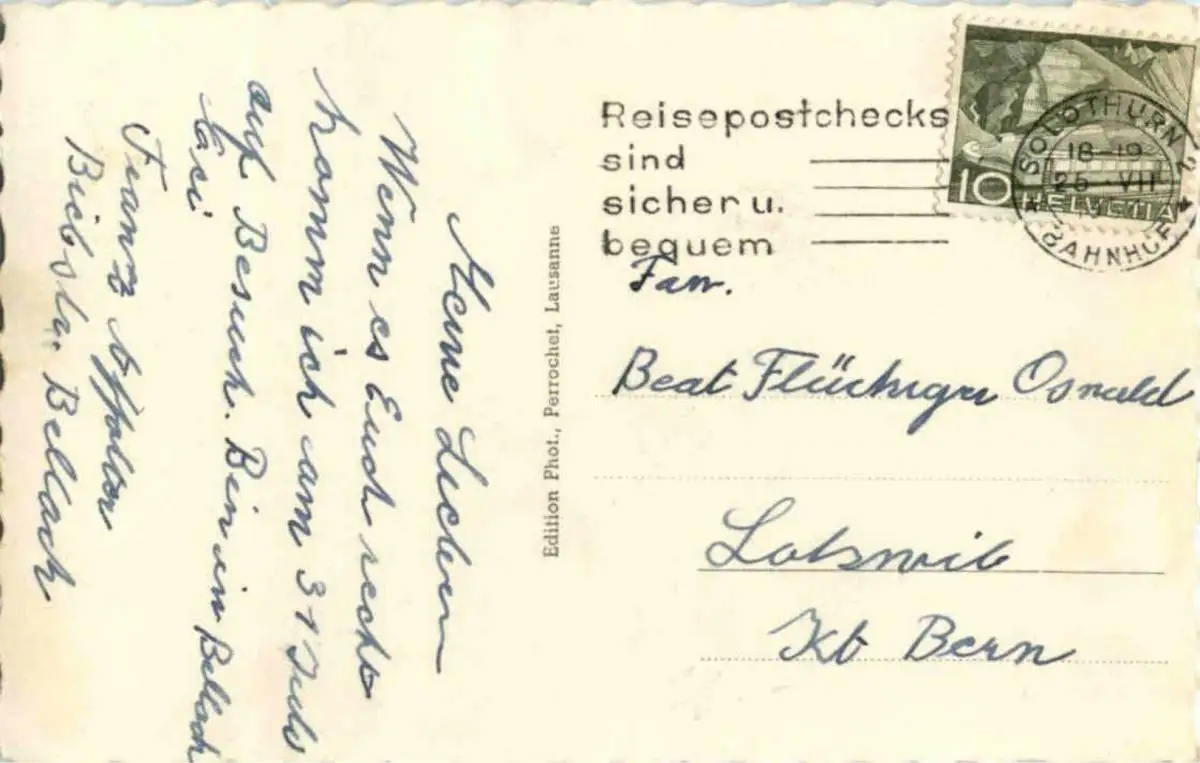 Meine Lieben
Wenn es Euch recht
komm ich am 31 Juli
auf Besuch. Bin in Bellach
Franz
Bielstr. Bellach
Edition Phot., Perrochet, Lausanne
Reisepostchecks
sind
sicher u.
bequem
10
HELVETIA
SOLOTHURN
18-19
25 VII
BAHNHOF
Fam.
Beat Flückiger Oswald
Lotzwil
Kt Bern